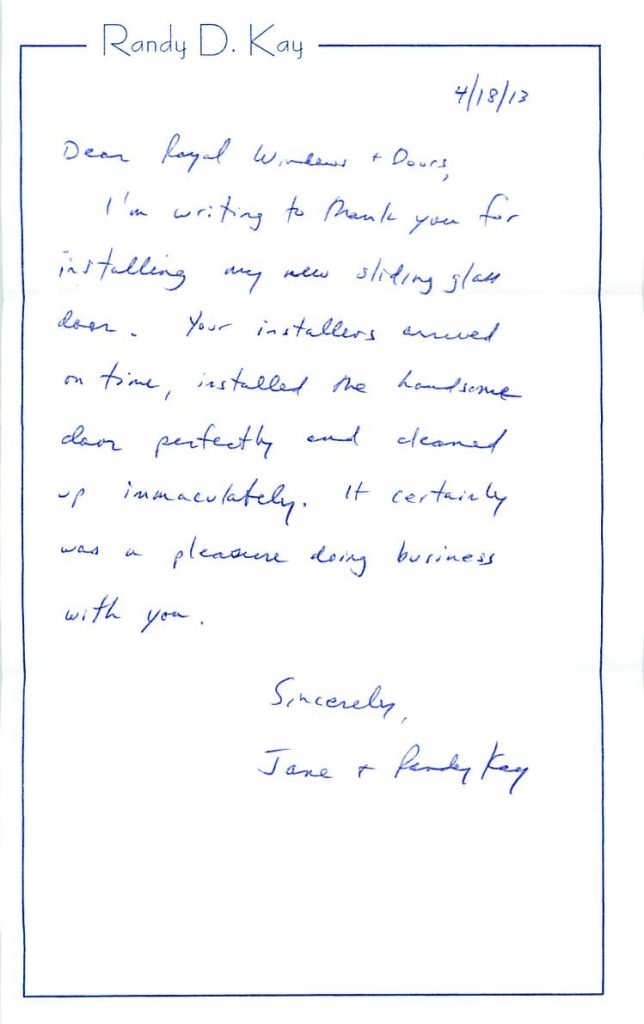 Randy D. Kay
4/18/13
Dear Royal Windows + Doors,
I'm writing to thank you for
installing my new sliding glass
door. Your installers arrived
on time, installed the handsome
door perfectly and cleaned
up immaculately. It certainly
was a pleasure doing business
with you.
Sincerely,
Jane + Randy Kay